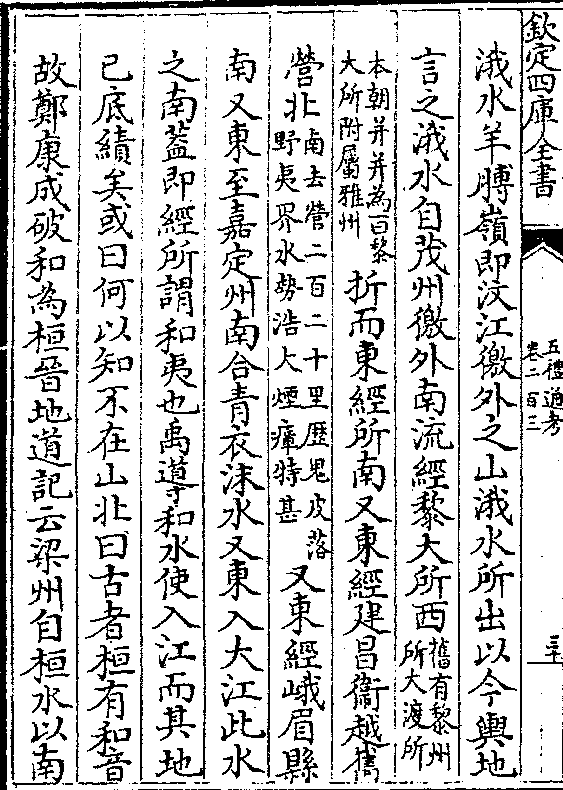 欽定四庫全書
五禮通考
卷二百三
三十
涐水羊膊嶺即汶江徼外之山涐水所出以今輿地
言之涐水自茂州徼外南流經黎大所西舊有黎州所大渡所
本朝并并為百黎大所附屬雅州折而東經所南又東經建昌衞越嶲
營北南去營二百二十里歴鬼皮落野夷界水勢浩大煙瘴特甚又東經峨眉縣
南又東至嘉定州南合青衣沫水又東入大江此水
之南葢即經所謂和夷也禹導和水使入江而其地
已底績矣或曰何以知不在山北曰古者桓有和音
故鄭康成破和為桓晉地道記云梁州自桓水以南